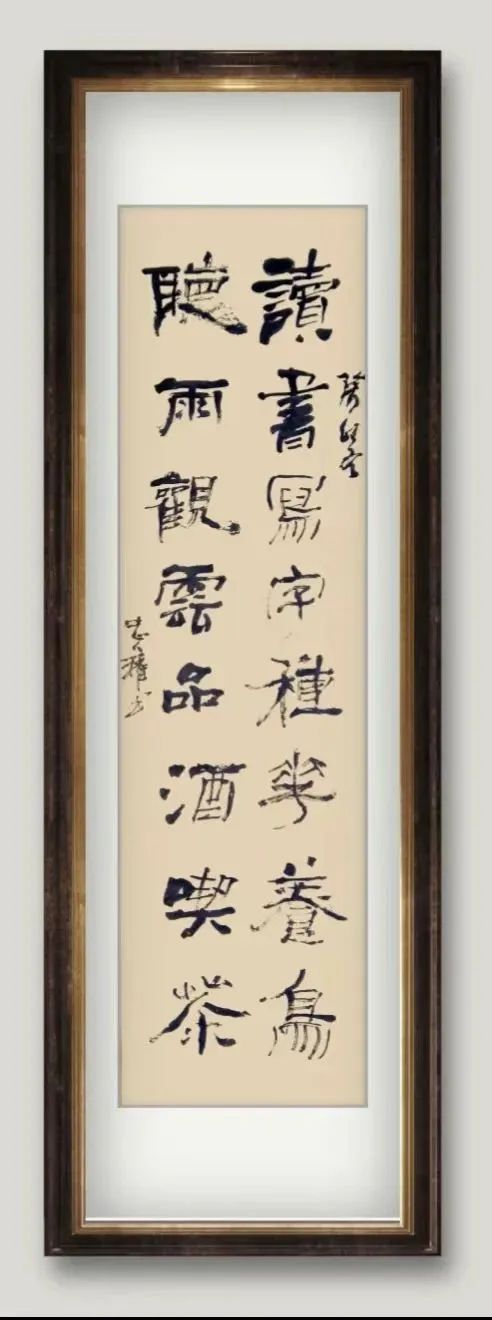 讀書寫字種花養鳥
聽雨觀雲品酒喫茶